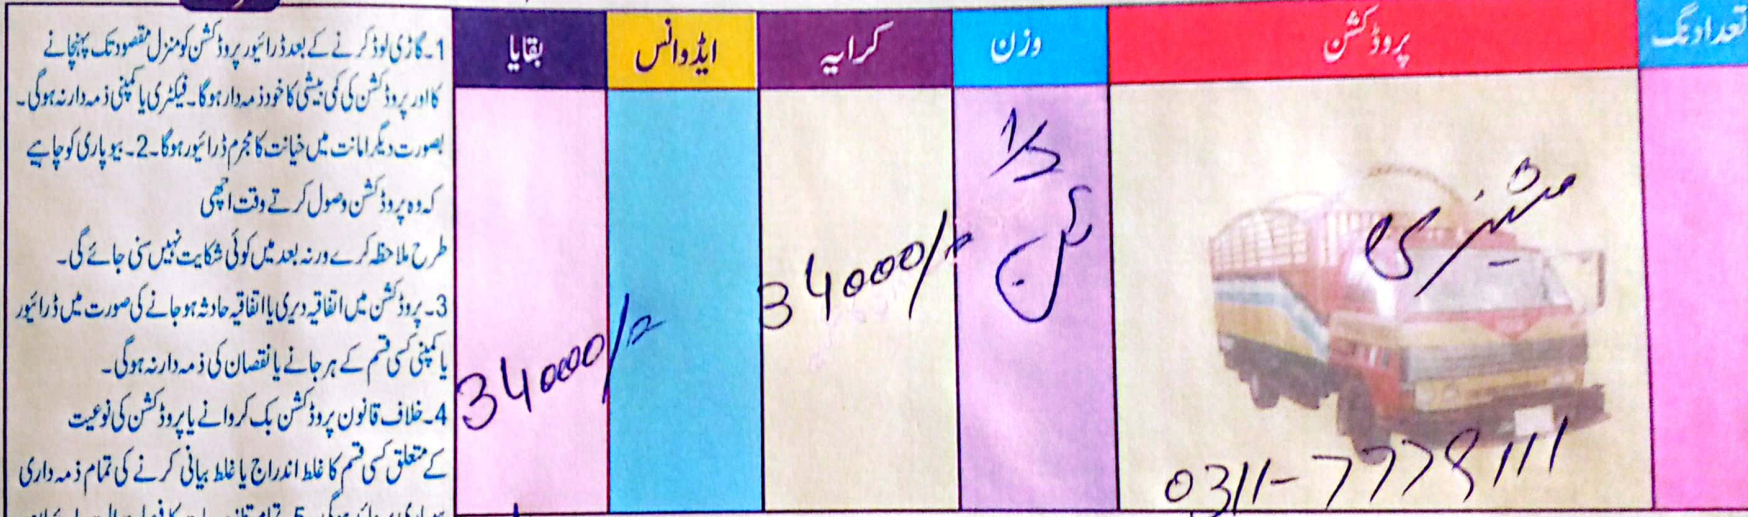 تعداد نگ
پروڈکشن
وزن
کرایہ
ایڈوانس
بقایا
مشینری
ٹن
34000/=
34000/=
1۔گاڑی لوڈ کرنے کے بعد ڈرائیور پروڈکشن کو منزل مقصود تک پہنچانے
کا اور پروڈکشن کی کمی بیشی کا خود ذمہ دار ہوگا۔فیکٹری یا کمپنی ذمہ دار نہ ہوگی۔
بصورت دیگر امانت میں خیانت کا مجرم ڈرائیور ہوگا۔2۔بیوپاری کو چاہیے
کہ وہ پروڈکشن وصول کرتے وقت اچھی
طرح ملاحظہ کرے ورنہ بعد میں کوئی شکایت نہیں سنی جائے گی۔
3۔پروڈکشن میں اتفاقیہ دیری یا اتفاقیہ حادثہ ہو جانے کی صورت میں ڈرائیور
یا کمپنی کسی قسم کے ہرجانے یا نقصان کی ذمہ دار نہ ہوگی۔
4۔خلاف قانون پروڈکشن بک کروانے یا پروڈکشن کی نوعیت
کے متعلق کسی قسم کا غلط اندراج یا غلط بیانی کرنے کی تمام ذمہ داری